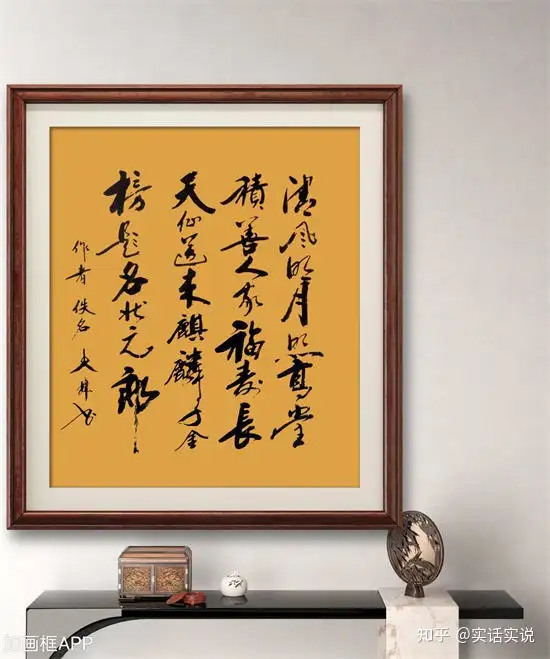 清风明月照高堂
積善人家福寿長
天仙送来麒麟子金
榜题名状元郎
作者佚名
加画框APP
知乎 @实话实说